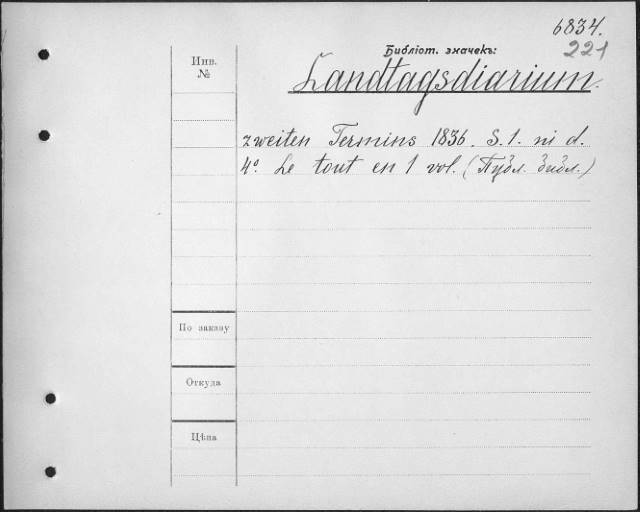 6834.
221
Библіот. значекъ:
Инв.
№
Landtagsdiarium.
zweiten Termins 1836. S. l. ni d.
4º. Le tout en 1 vol. (Публ. библ.)
По заказу
Откуда
Цѣна